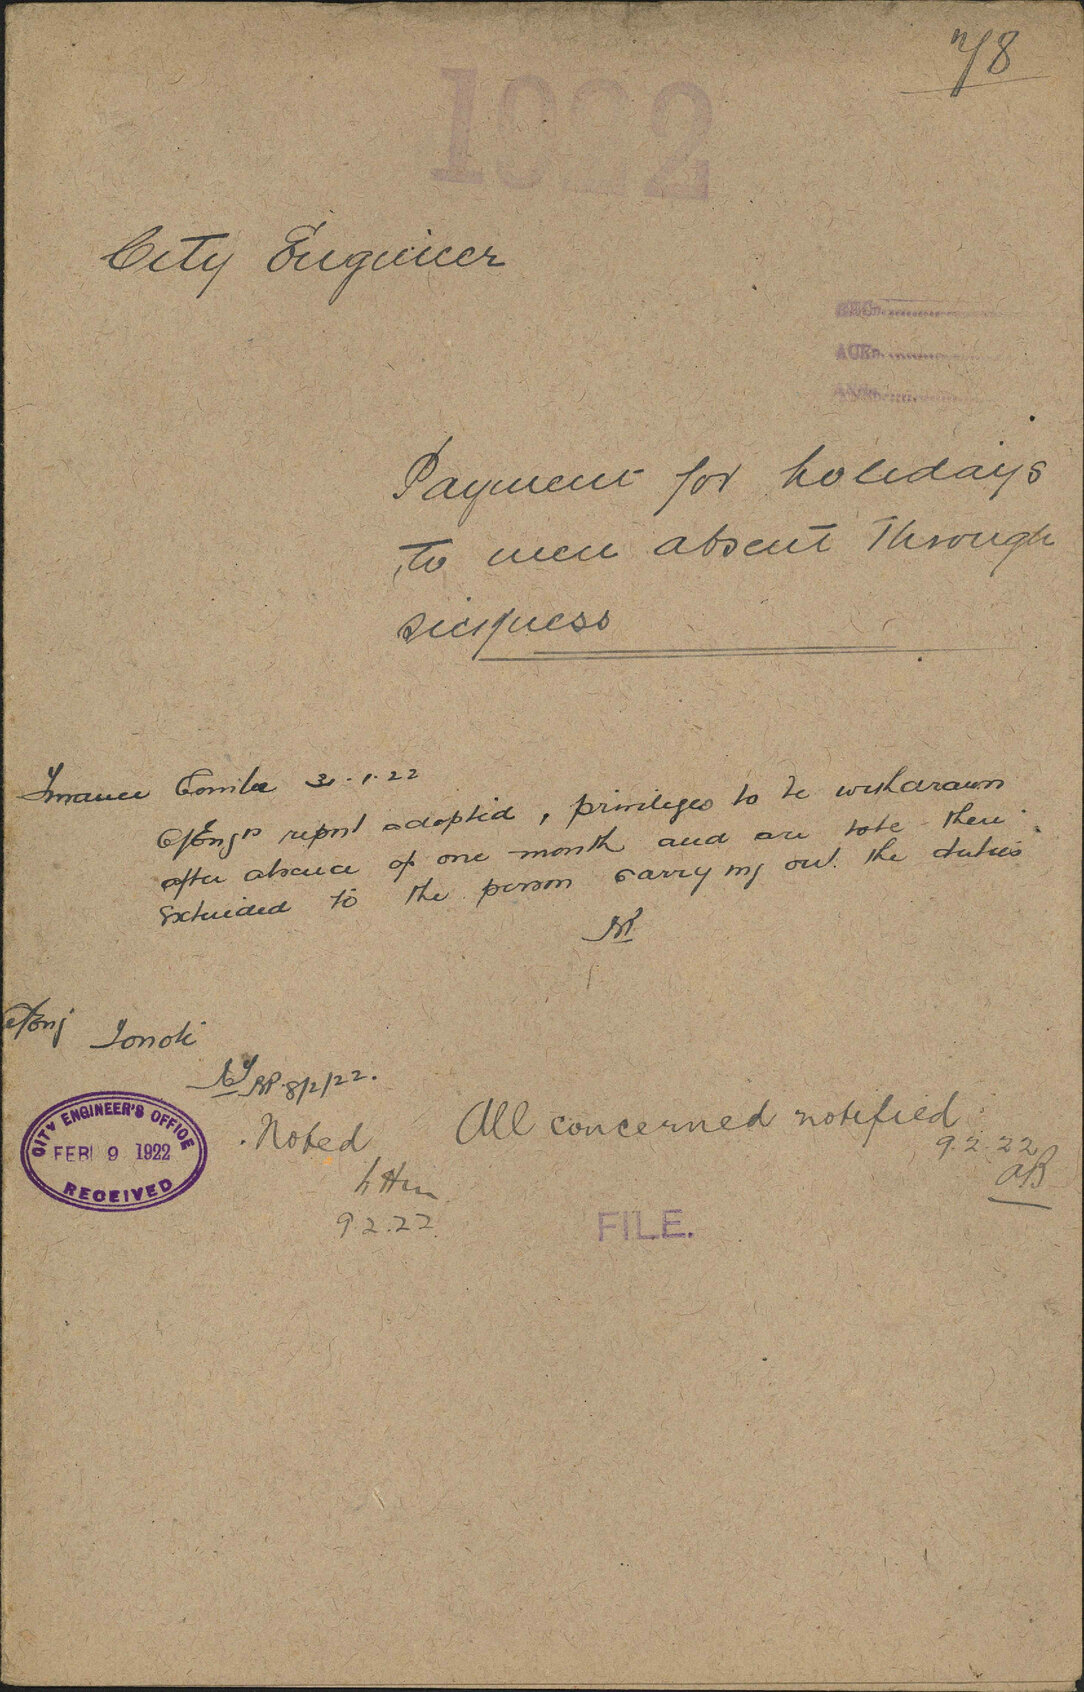 7/8
1922
City Engineer
REC
ACK
ANS
Payment for holidays
to men absent through
sickness
Finance Comtee 31.1.22
C/Engrs report adopted, privileges to be withdrawn
after absence of one month and are to be then
extended to the person carrying out the duties
C/Eng
To note
8/2/22.
CITY ENGINEER'S OFFICE
FEB 9 1922
RECEIVED
Noted
9.2.22
All concerned notified
9.2.22
FILE.